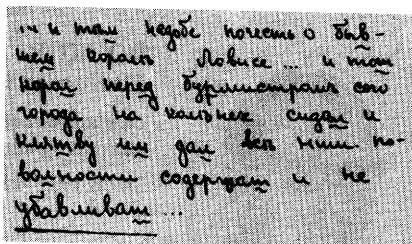 ... и там надобе почесть о быв-
шем король Ловисе ... и тот
корол перед бурмистром сего
города на колѣнех сидѣл и
клятву им дал всѣ нши по-
волности содержат и не
убавливат ...